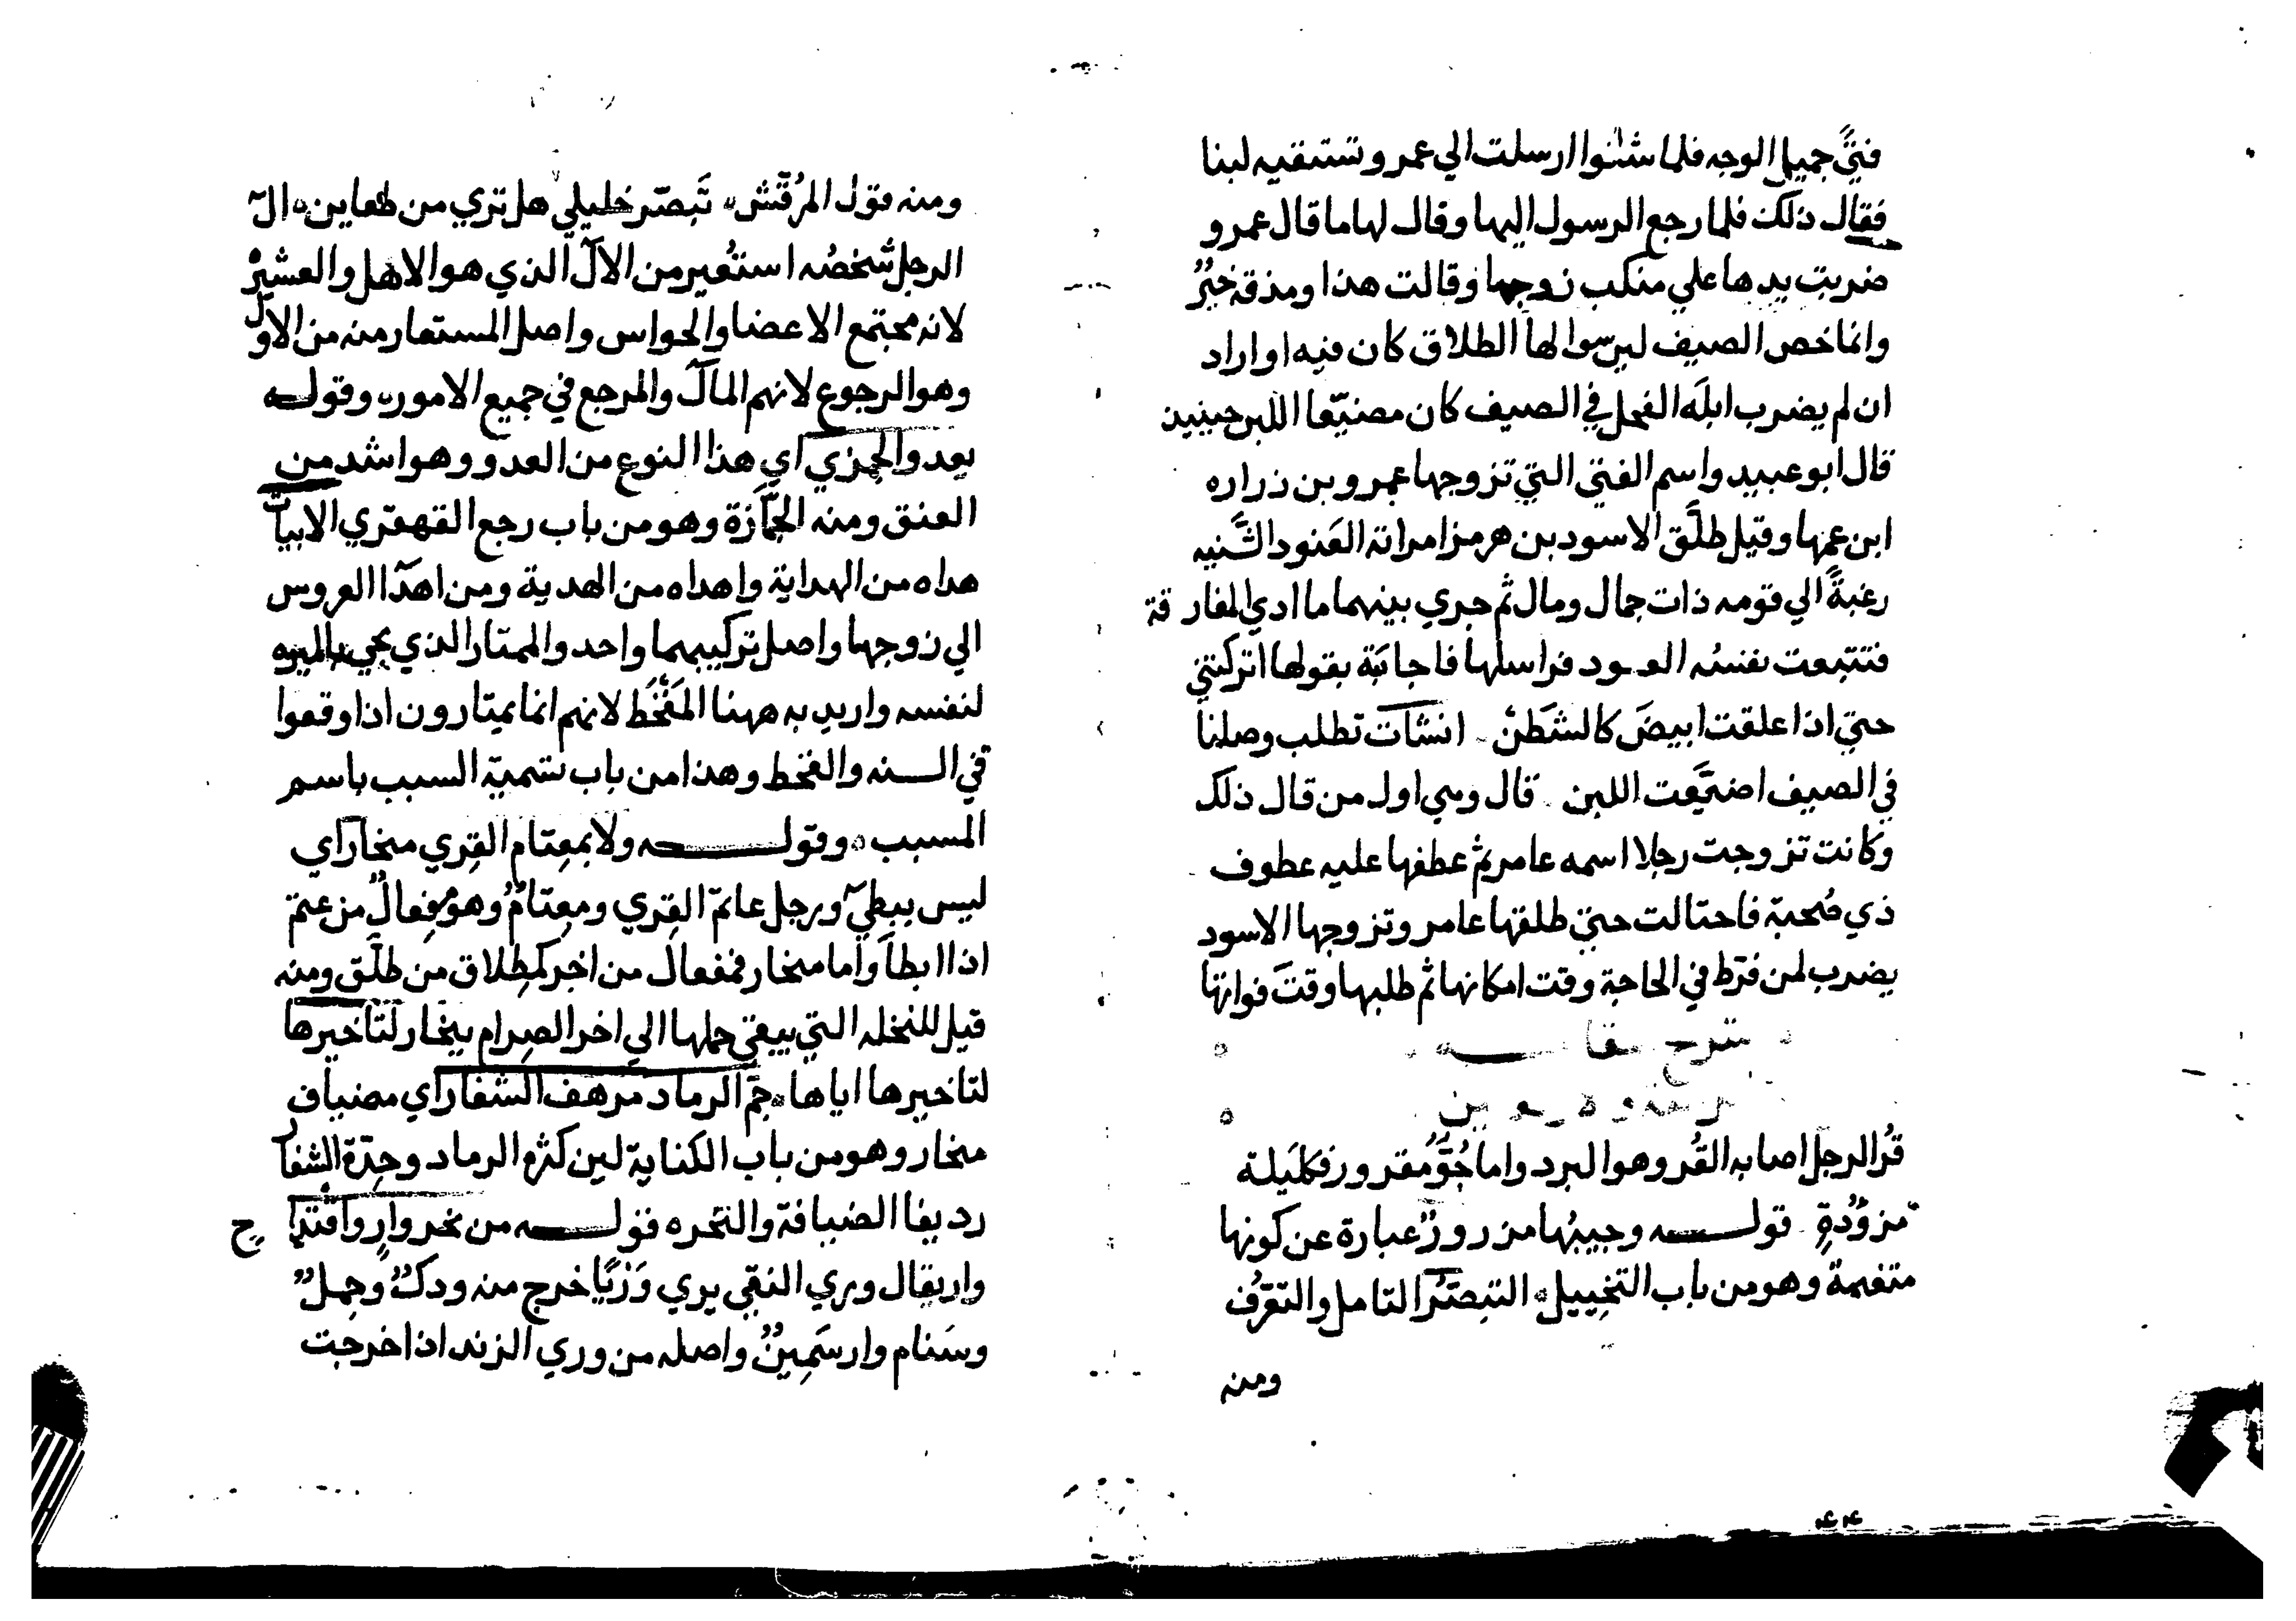 فتيً جميل الوجه فلما شتوا ارسلت الي عمرو تستقيه لبنا
فقال ذلك فلما رجع الرسول اليها وقال لها ما قال عمرو
ضربت يدها علي منكب زوجها وقالت هذا ومذقه خيرٌ
وانما خص الصيف لين سوالها الطلاق كان فيه او اراد
ان لم يضرب ابلَه الفحل في الصيف كان مضيّعا اللبن حينين
قال ابو عبيد واسم الفتي التي تزوجها عمرو بن زراره
ابن عمها وقيل طلّق الاسود بن هرمز امراته العَنود الشَّنيه
رغبةً الي قومه ذات جمال ومال ثم جري بينهما ما ادي المفارقة
فتتبعت نفسُه العـود فراسلها فاجابَتة بقولها اتركتني
حتي اذا علقت ابيضَ كالشطن انشات تطلب وصلنا
في الصيف اضيَّعت اللبن قال وهي اول من قال ذلك
وكانت تزوجت رجلا اسمه عامر ثم عطفها عليه عطوف
ذي صُحبة فاحتالت حتي طلقها عامر وتزوجها الاسود
يضرب لمن فرّط في الحاجة وقت امكانها ثم طلبها وقتَ فواتها
شرح مقا
قُر الرجل اصابه القُر وهو البرد واما جُوٌّ مقرور فكلَيلة
مزؤُدةٍ قولـه وجيبُها مزرورٌ عبارة عن كونها
متغيمة وهو من باب التخييل التبصّرُ التامل والتعرّف
ومنه
ومنه قول المُرقّش تَبصّر خليلي هل تري من ظعاين الّ
الرجل شخصُه استُعير من الآل الذي هو الاهل والعشيرُ
لانه مجتمع الاعضا والحواس واصل المستعار منه من الاول
وهو الرجوع لانهم المآل والمرجع في جميع الامور وقولـه
يعدو الجمزي اي هذا النوع من العدو وهو اشد من
العنق ومنه الجَمّازَة وهو من باب رجع القهقري الابياتَ
هداه من الهداية واهداه من الهدية ومن اهدَا العروس
الي زوجها واصل تركيبهما واحد والممتار الذي يجي بالميره
لنفسه واريد به ههنا المقَحَط لانهم انما يمتارون اذا وقعوا
في السنه والقحط وهذا من باب تسمية السبب باسم
المسبب وقولـه ولا بمعِتام القِري مئخار اي
ليس ببطيّ ورجل عاتم القِري ومعِتامٌ وهو مفِعالٌ من عتم
اذا ابطأَ واما مئخار فمفعال من اخر كمِطلاق من طلّق ومنه
قيل للنخله التي يبقي حملها الي اخر الصِرام مئخار لتاخيرها
لتاخيرها اياها جمّ الرماد مرهف الشفار اي مضياف
منحار وهو من باب الكناية لين كثره الرماد وحِدّة الشفار
رديفا الضيافة والنحره قولـه من نحر وارٍ واقتدا ح
وار يقال وري النقي يري وَرْيًا خرج منه ودكٌ وجملٌ
وسَنام وار سَمِينٌ واصله من وري الزند اذا اخرجت